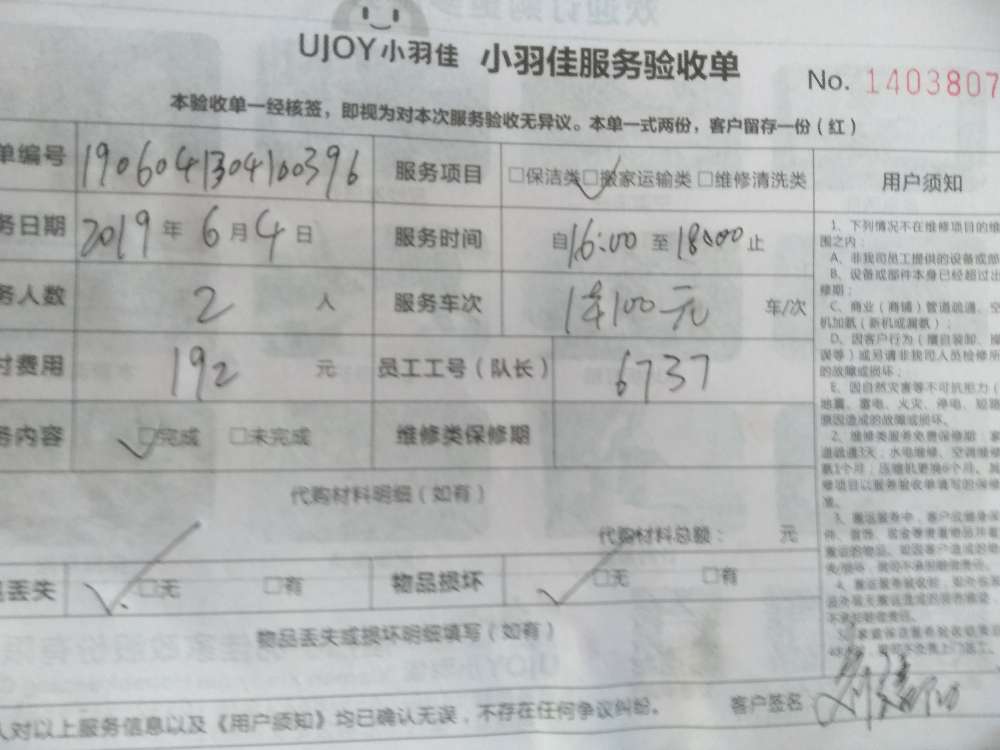 UJOY小羽佳 小羽佳服务验收单
No. 1403807
本验收单一经核签，即视为对本次服务验收无异议。本单一式两份，客户留存一份（红）
单编号 1906041304100396 服务项目 □保洁类 □搬家运输类 □维修清洗类
务日期 2019年6月4日 服务时间 自16:00至18:00止
务人数 2 人 服务车次 100元 车/次
付费用 192 元 员工工号（队长） 6737
务内容 □完成 □未完成 维修类保修期
代购材料明细（如有）
代购材料总额： 元
丢失 □无 □有 物品损坏 □无 □有
物品丢失或损坏明细填写（如有）
人对以上服务信息以及《用户须知》均已确认无误，不存在任何争议纠纷。 客户签名
用户须知
1、下列情况不在维修项目的维
围之内：
A、非我司员工提供的设备或部
B、设备或部件本身已经超过出
修期；
C、商业（商铺）管道疏通、空
机加氨（新机或漏氨）；
D、因客户行为（擅自装卸、操
误等）或另请非我司人员检修所
的故障或损坏；
E、因自然灾害等不可抗拒力（
地震、雷电、火灾、停电、短路
原因造成的故障或损坏。
2、维修类服务免费保修期：家
道疏通3天；水电维修、空调维修
氨1个月；压缩机更换6个月。其
修项目以服务验收单填写的保修
准。